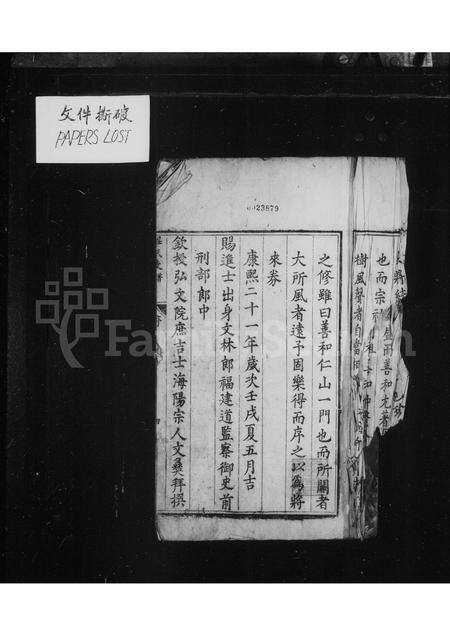 文件撕破
PAPERS LOST
0023879
也而宗祠
樹風聲者自當
之修雖曰善和仁山一門也而所關者
大所風者遠予因樂得而序之以為將
來券
康熙二十一年歲次壬戌夏五月吉
賜進士出身文林郎福建道監察御史前
刑部郎中
欽授弘文院庶吉士海陽宗人文彝拜撰
FamilySearch